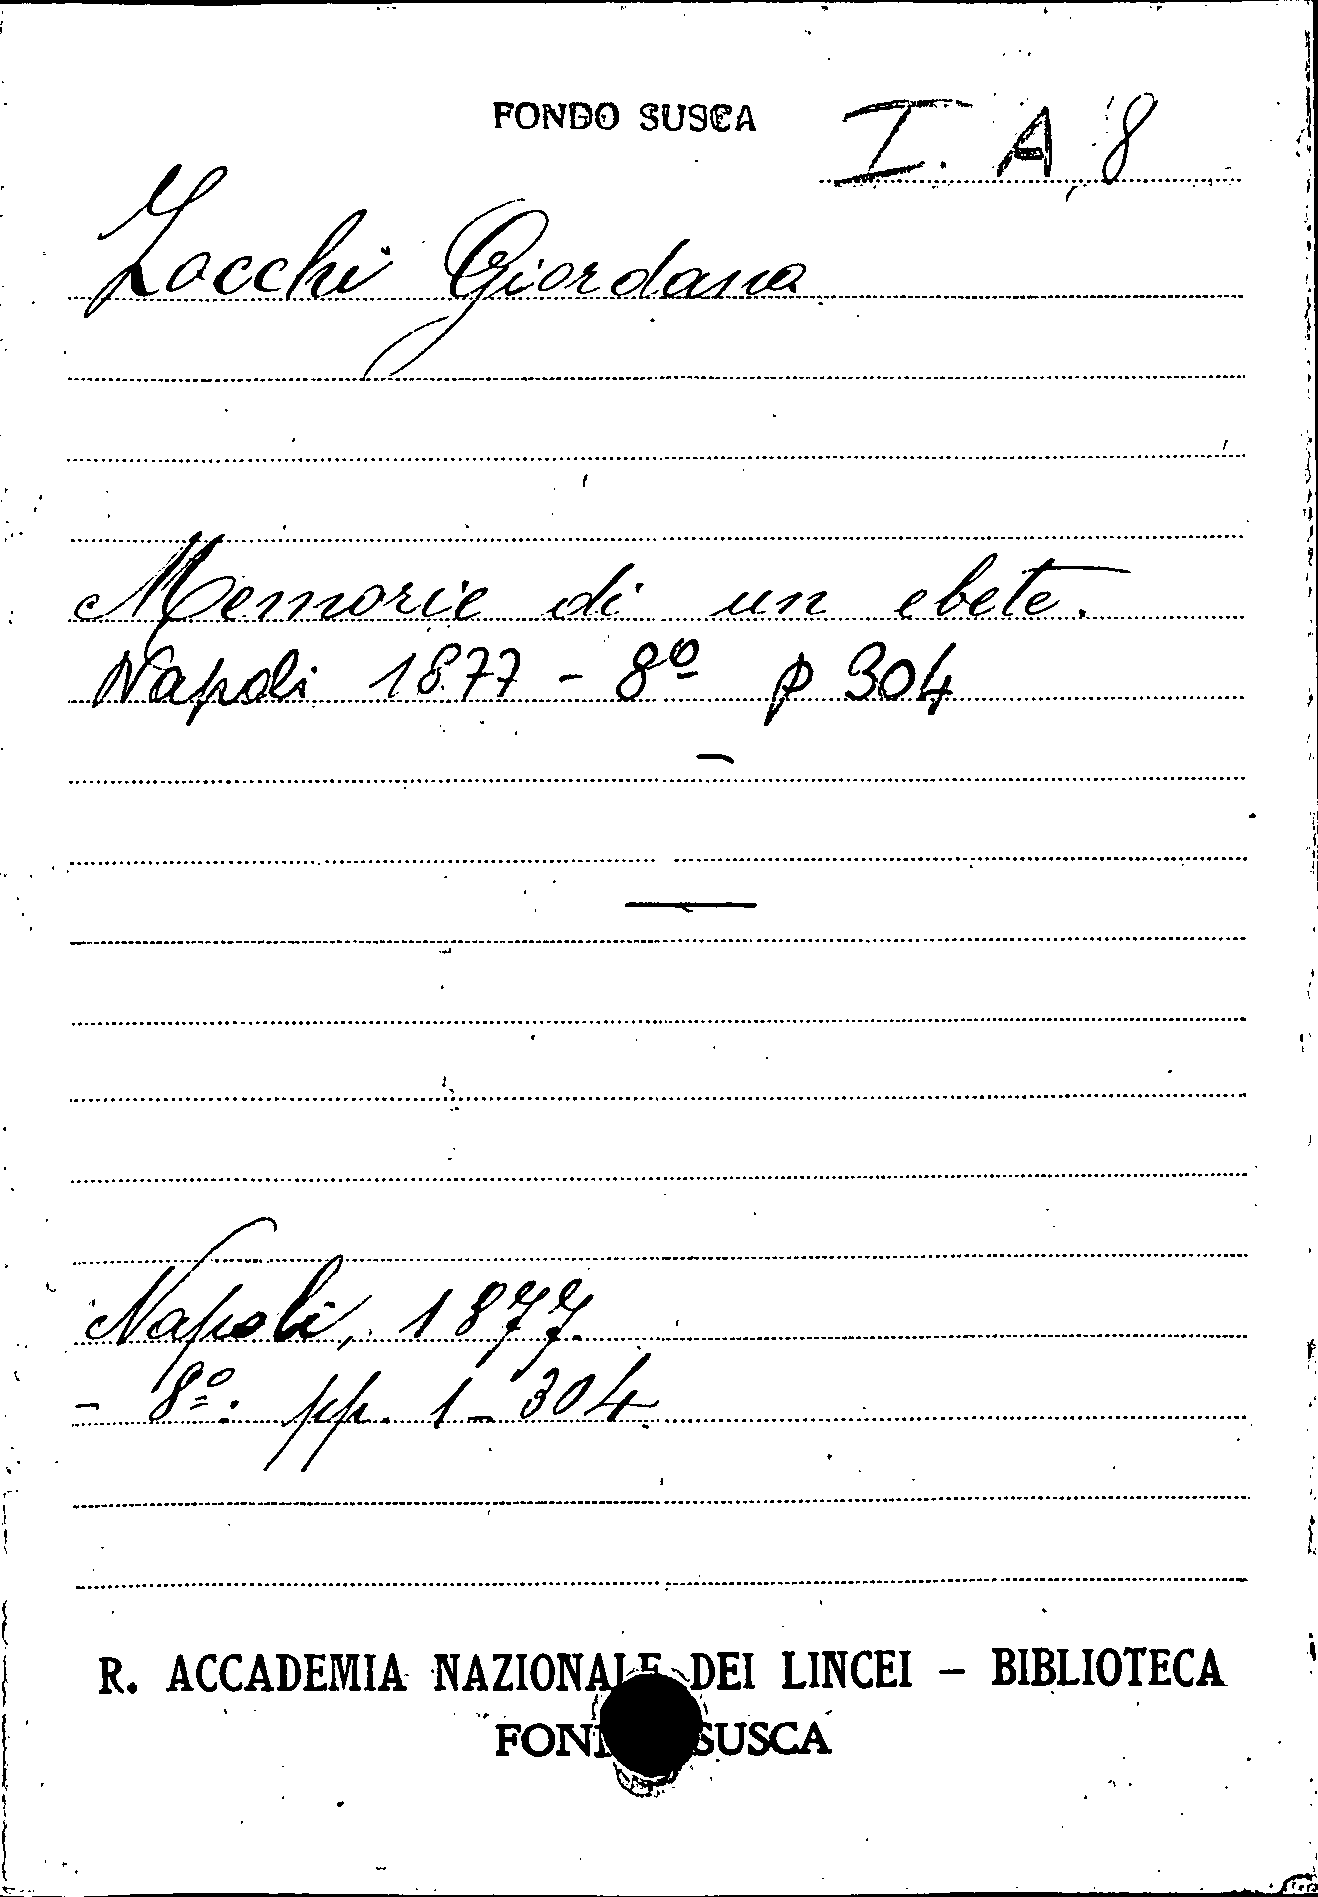 FONDO SUSCA
I. A, 8
Zocchi Giordana
Memorie di un ebete.
Napoli 1877 - 8º p 304
Napoli, 1877.
- 8º. pp. 1-304
R. ACCADEMIA NAZIONALE DEI LINCEI - BIBLIOTECA
FONDO SUSCA